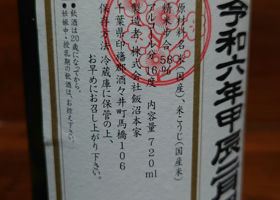 令和六年甲辰二月
原材料名 米(国産)、米こうじ(国産米)
精米歩合58%
アルコール分16度 内容量720ml
製造者 株式会社飯沼本家
千葉県印旛郡酒々井町馬橋106
保存方法 冷蔵庫に保管の上、
お早めにお召し上がり下さい。
●飲酒は20歳になってから。
●妊娠中・授乳期の飲酒は、お控え下さい。